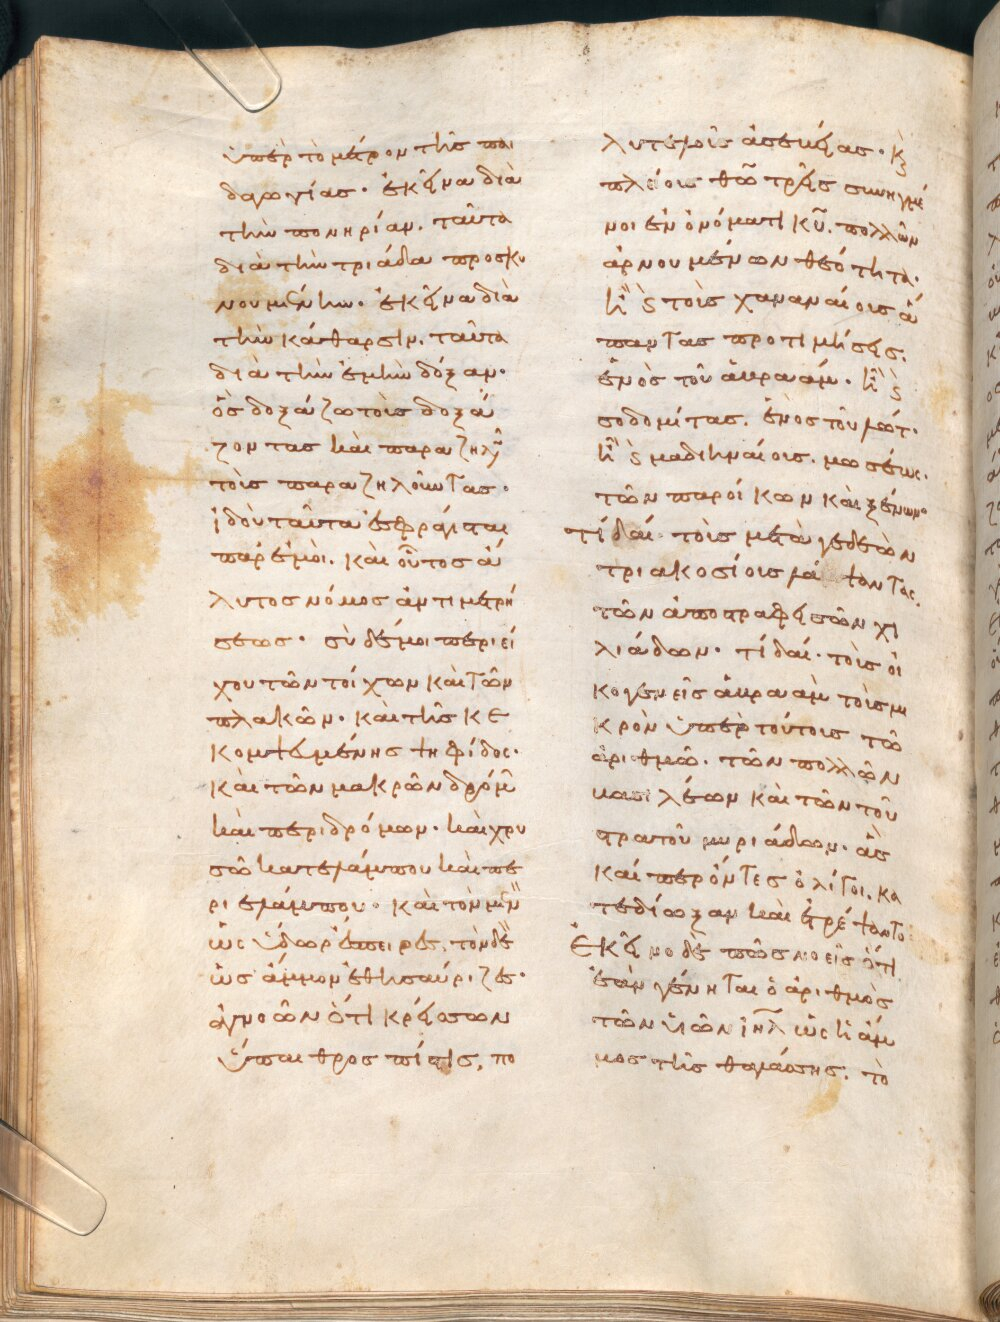 ὑπὲρ τὸ μέτρον τῆς παι
δαγωγίας· ἐκεῖνα διὰ
τὴν πονηρίαν. ταῦτα
διὰ τὴν τριάδα προσκυ
νουμένην· ἐκεῖνα διὰ
τὴν κάθαρσιν. ταῦτα
διὰ τὴν ἐμὴν δόξαν·
ὃς δοξάζω τοὺς δοξά
ζοντας καὶ παραζηλῶ
τοὺς παραζηλοῦντας·
ἰδοὺ ταῦτα ἐσφράγισται
παρ' ἐμοί. καὶ οὗτος ἄ
λυτος νόμος ἀντιμετρή
σεως· σὺ δέ μοι περιεί
χου τῶν τοίχων καὶ τῶν
πλακῶν· καὶ τῆς κε
κομψευμένης ψηφίδος·
καὶ τῶν μακρῶν δρόμων
καὶ περιδρόμων· καὶ χρυ
σῶ κατελάμπου καὶ πε
ριελάμπου· καὶ τὸν μὲν
ὡς ὕδωρ ἔσπειρες, τὸν δὲ
ὡς ἄμμον ἐθησαύριζες·
ἀγνοῶν ὅτι κρείσσων
ὕπαιθρος πίστις, πο
λυτελοῦς ἀσεβείας· καὶ
πλείους θεῶ τρεῖς συνηγμέ
νοι ἐν ὀνόματι κυ. πολλῶν
ἀρνουμένων θεότητα·
ἢ τοὺς χαναναίους ἅ
παντας προτιμήσεις.
ἑνὸς τοῦ ἀβραάμ· ἢ
σοδομίτας. ἑνὸς τοῦ λώτ·
ἢ μαδιηναίους. μωσέως·
τῶν παροίκων καὶ ξένων·
τί δαί· τοὺς μετὰ γεδεὼν
τριακοσίους λάψαντας.
τῶν ἀποστραφεισῶν χι
λιάδων· τί δαί· τοὺς οἰ
κογενεῖς ἀβραὰμ τοὺς μι
κρὸν ὑπὲρ τούτους τῶ
ἀριθμῶ. τῶν πολλῶν
βασιλέων καὶ τῶν τοῦ
στρατοῦ μυριάδων· ἃς
καίπερ ὄντες ὀλίγοι. κα
τεδίωξαν καὶ ἐτρέψαντο·
Ἐκεῖνο δὲ πῶς νοεῖς ὅτι
ἐὰν γένηται ὁ ἀριθμὸς
τῶν υἱῶν ἰηλ ὡς ἡ ἄμ
μος τῆς θαλάσσης. τὸ